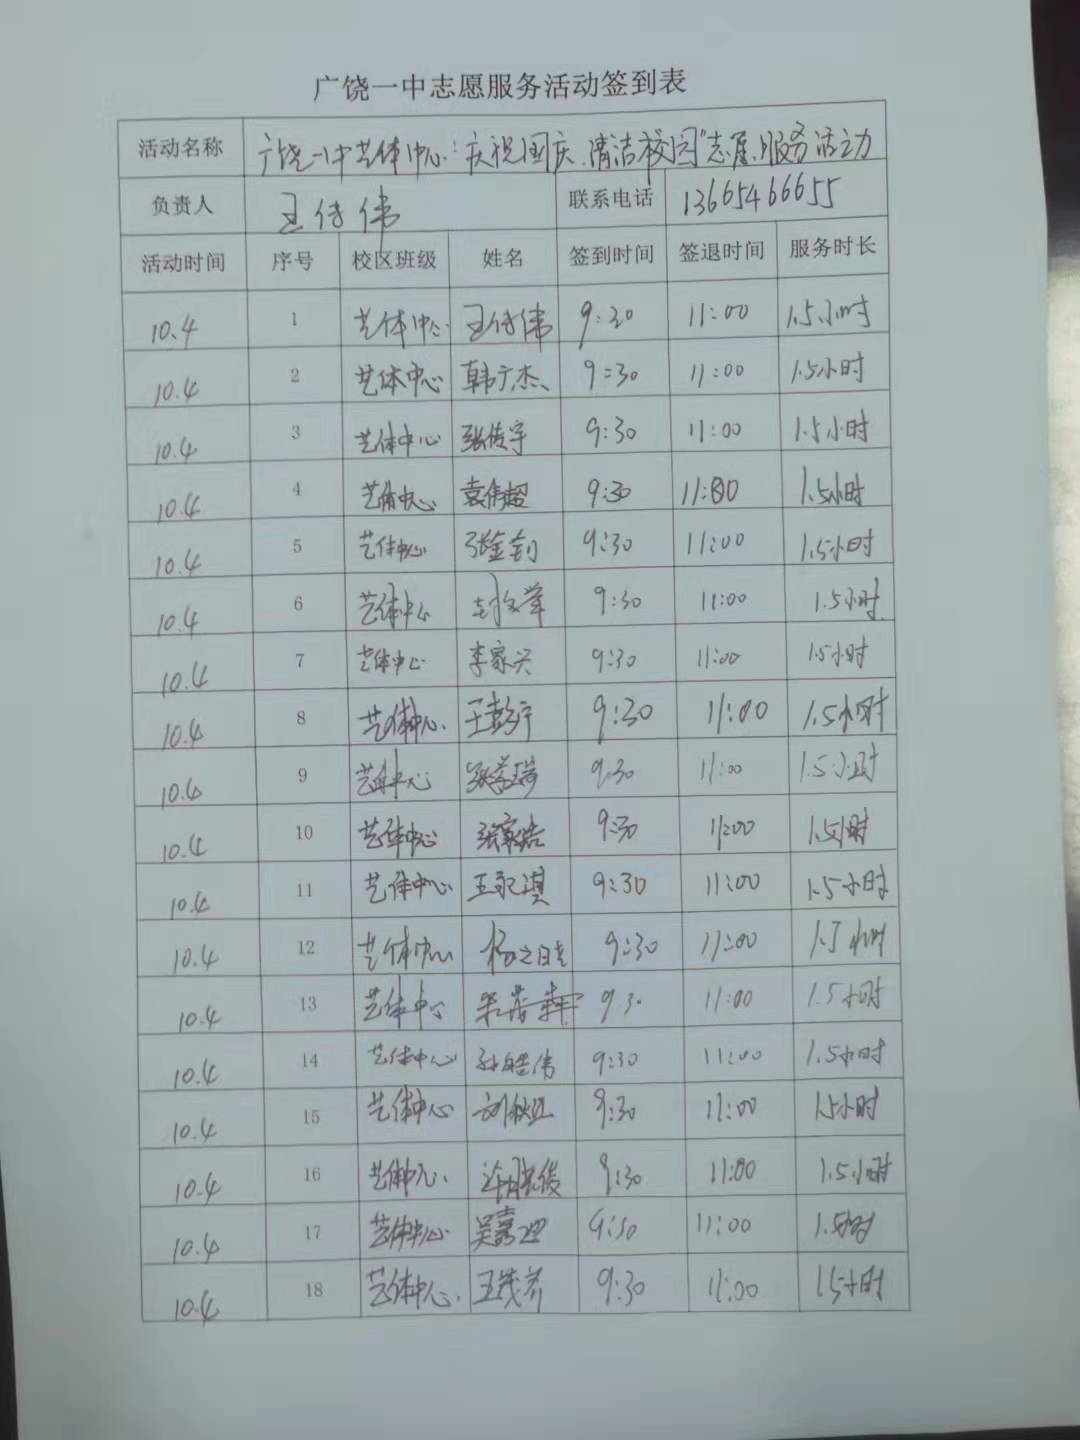 广饶一中志愿服务活动签到表
活动名称 广饶一中艺体中心:庆祝国庆.清洁校园"志愿服务活动
负责人 王传伟 联系电话 13665466655
活动时间 序号 校区班级 姓名 签到时间 签退时间 服务时长
10.4 1 艺体中心 王传伟 9:30 11:00 1.5小时
10.4 2 艺体中心 韩广杰 9:30 11:00 1.5小时
10.4 3 艺体中心 张传宇 9:30 11:00 1.5小时
10.4 4 艺体中心 袁伟超 9:30 11:00 1.5小时
10.4 5 艺体中心 张金钊 9:30 11:00 1.5小时
10.4 6 艺体中心 9:30 11:00 1.5小时
10.4 7 艺体中心 李家兴 9:30 11:00 1.5小时
10.4 8 艺体中心 王彭宁 9:30 11:00 1.5小时
10.4 9 艺体中心 9:30 11:00 1.5小时
10.4 10 艺体中心 张家浩 9:30 11:00 1.5小时
10.4 11 艺体中心 王永淇 9:30 11:00 1.5小时
10.4 12 艺体中心 9:30 11:00 1.5小时
10.4 13 艺体中心 9:30 11:00 1.5小时
10.4 14 艺体中心 孙皓伟 9:30 11:00 1.5小时
10.4 15 艺体中心 9:30 11:00 1.5小时
10.4 16 艺体中心 9:30 11:00 1.5小时
10.4 17 艺体中心 9:30 11:00 1.5小时
10.4 18 艺体中心 9:30 11:00 1.5小时